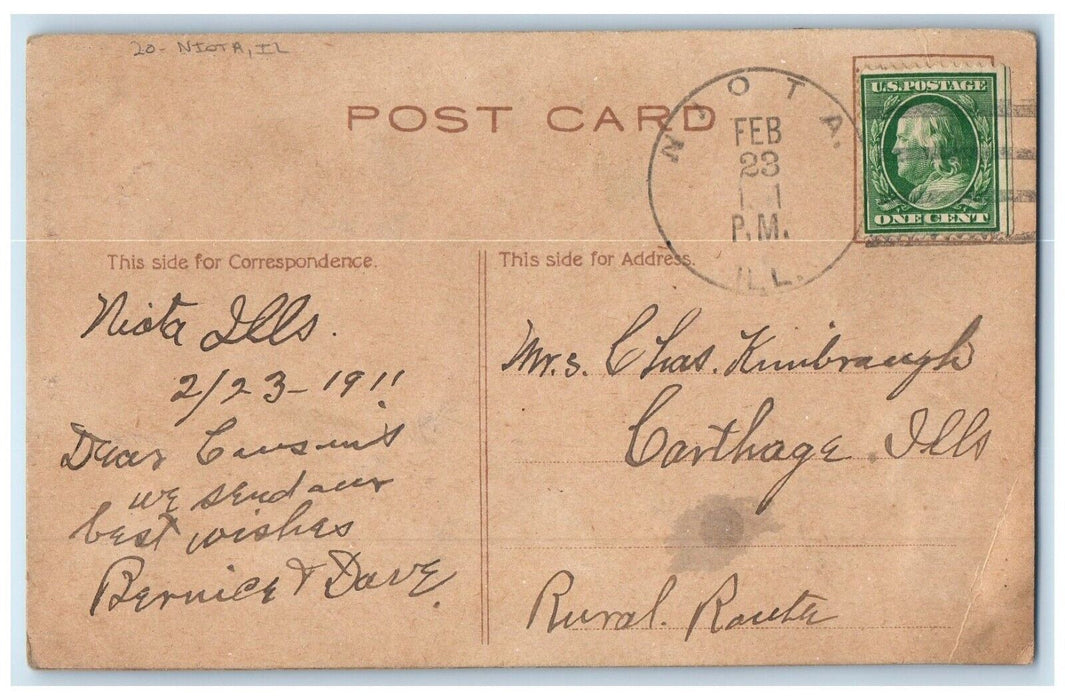 20- NIOTA, IL
POST CARD
NIOTA.
FEB
23
P.M.
ILL.
U.S. POSTAGE
ONE CENT
This side for Correspondence.
This side for Address.
Niota Ills.
2/23-1911
Dear Cousins
we send our
best wishes
Bernice & Dave.
Mrs. Chas. Kimbraugh
Carthage. Ills
Rural. Route